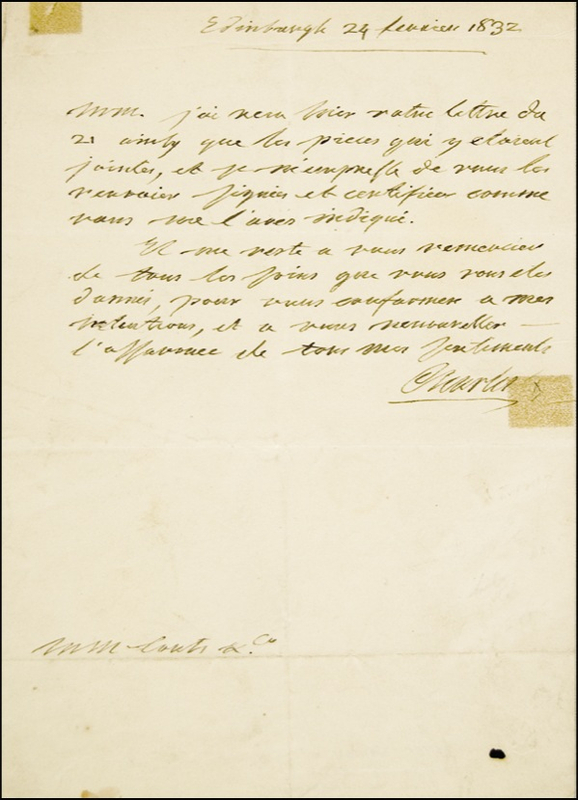 Edinburgh 24 fevrier 1832
MM. j'ai recu hier votre lettre du
21 ainsy que les pieces qui y etoient
jointes, et je m'empresse de vous les
renvoier signées et certifiées comme
vous me l'avés indiqué.
Il me reste a vous remercier
de tous les soins que vous vous etes
donnés, pour vous conformer a mes
intentions, et a vous renouveller
l'assurance de tous mes sentiments
Charles
MM Couts & Co